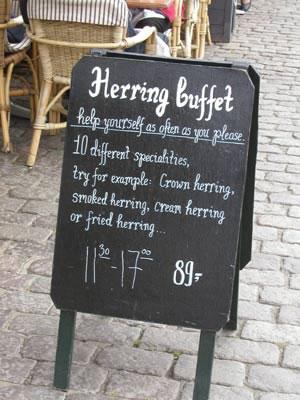 Herring buffet
help yourself as often as you please.
10 different specialities,
try for example: Crown herring,
smoked herring, cream herring
or fried herring...
11³⁰-17⁰⁰ 89:-